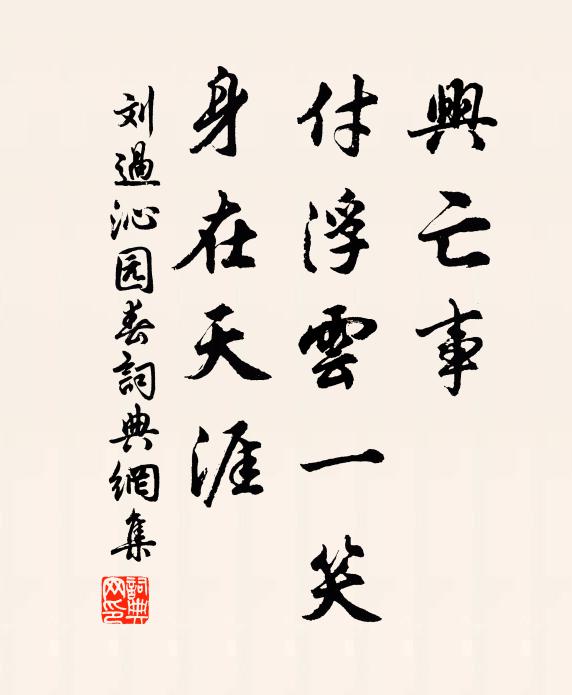 興亡事
付浮雲一笑
身在天涯
刘過沁园春詞典網集
詞典网印